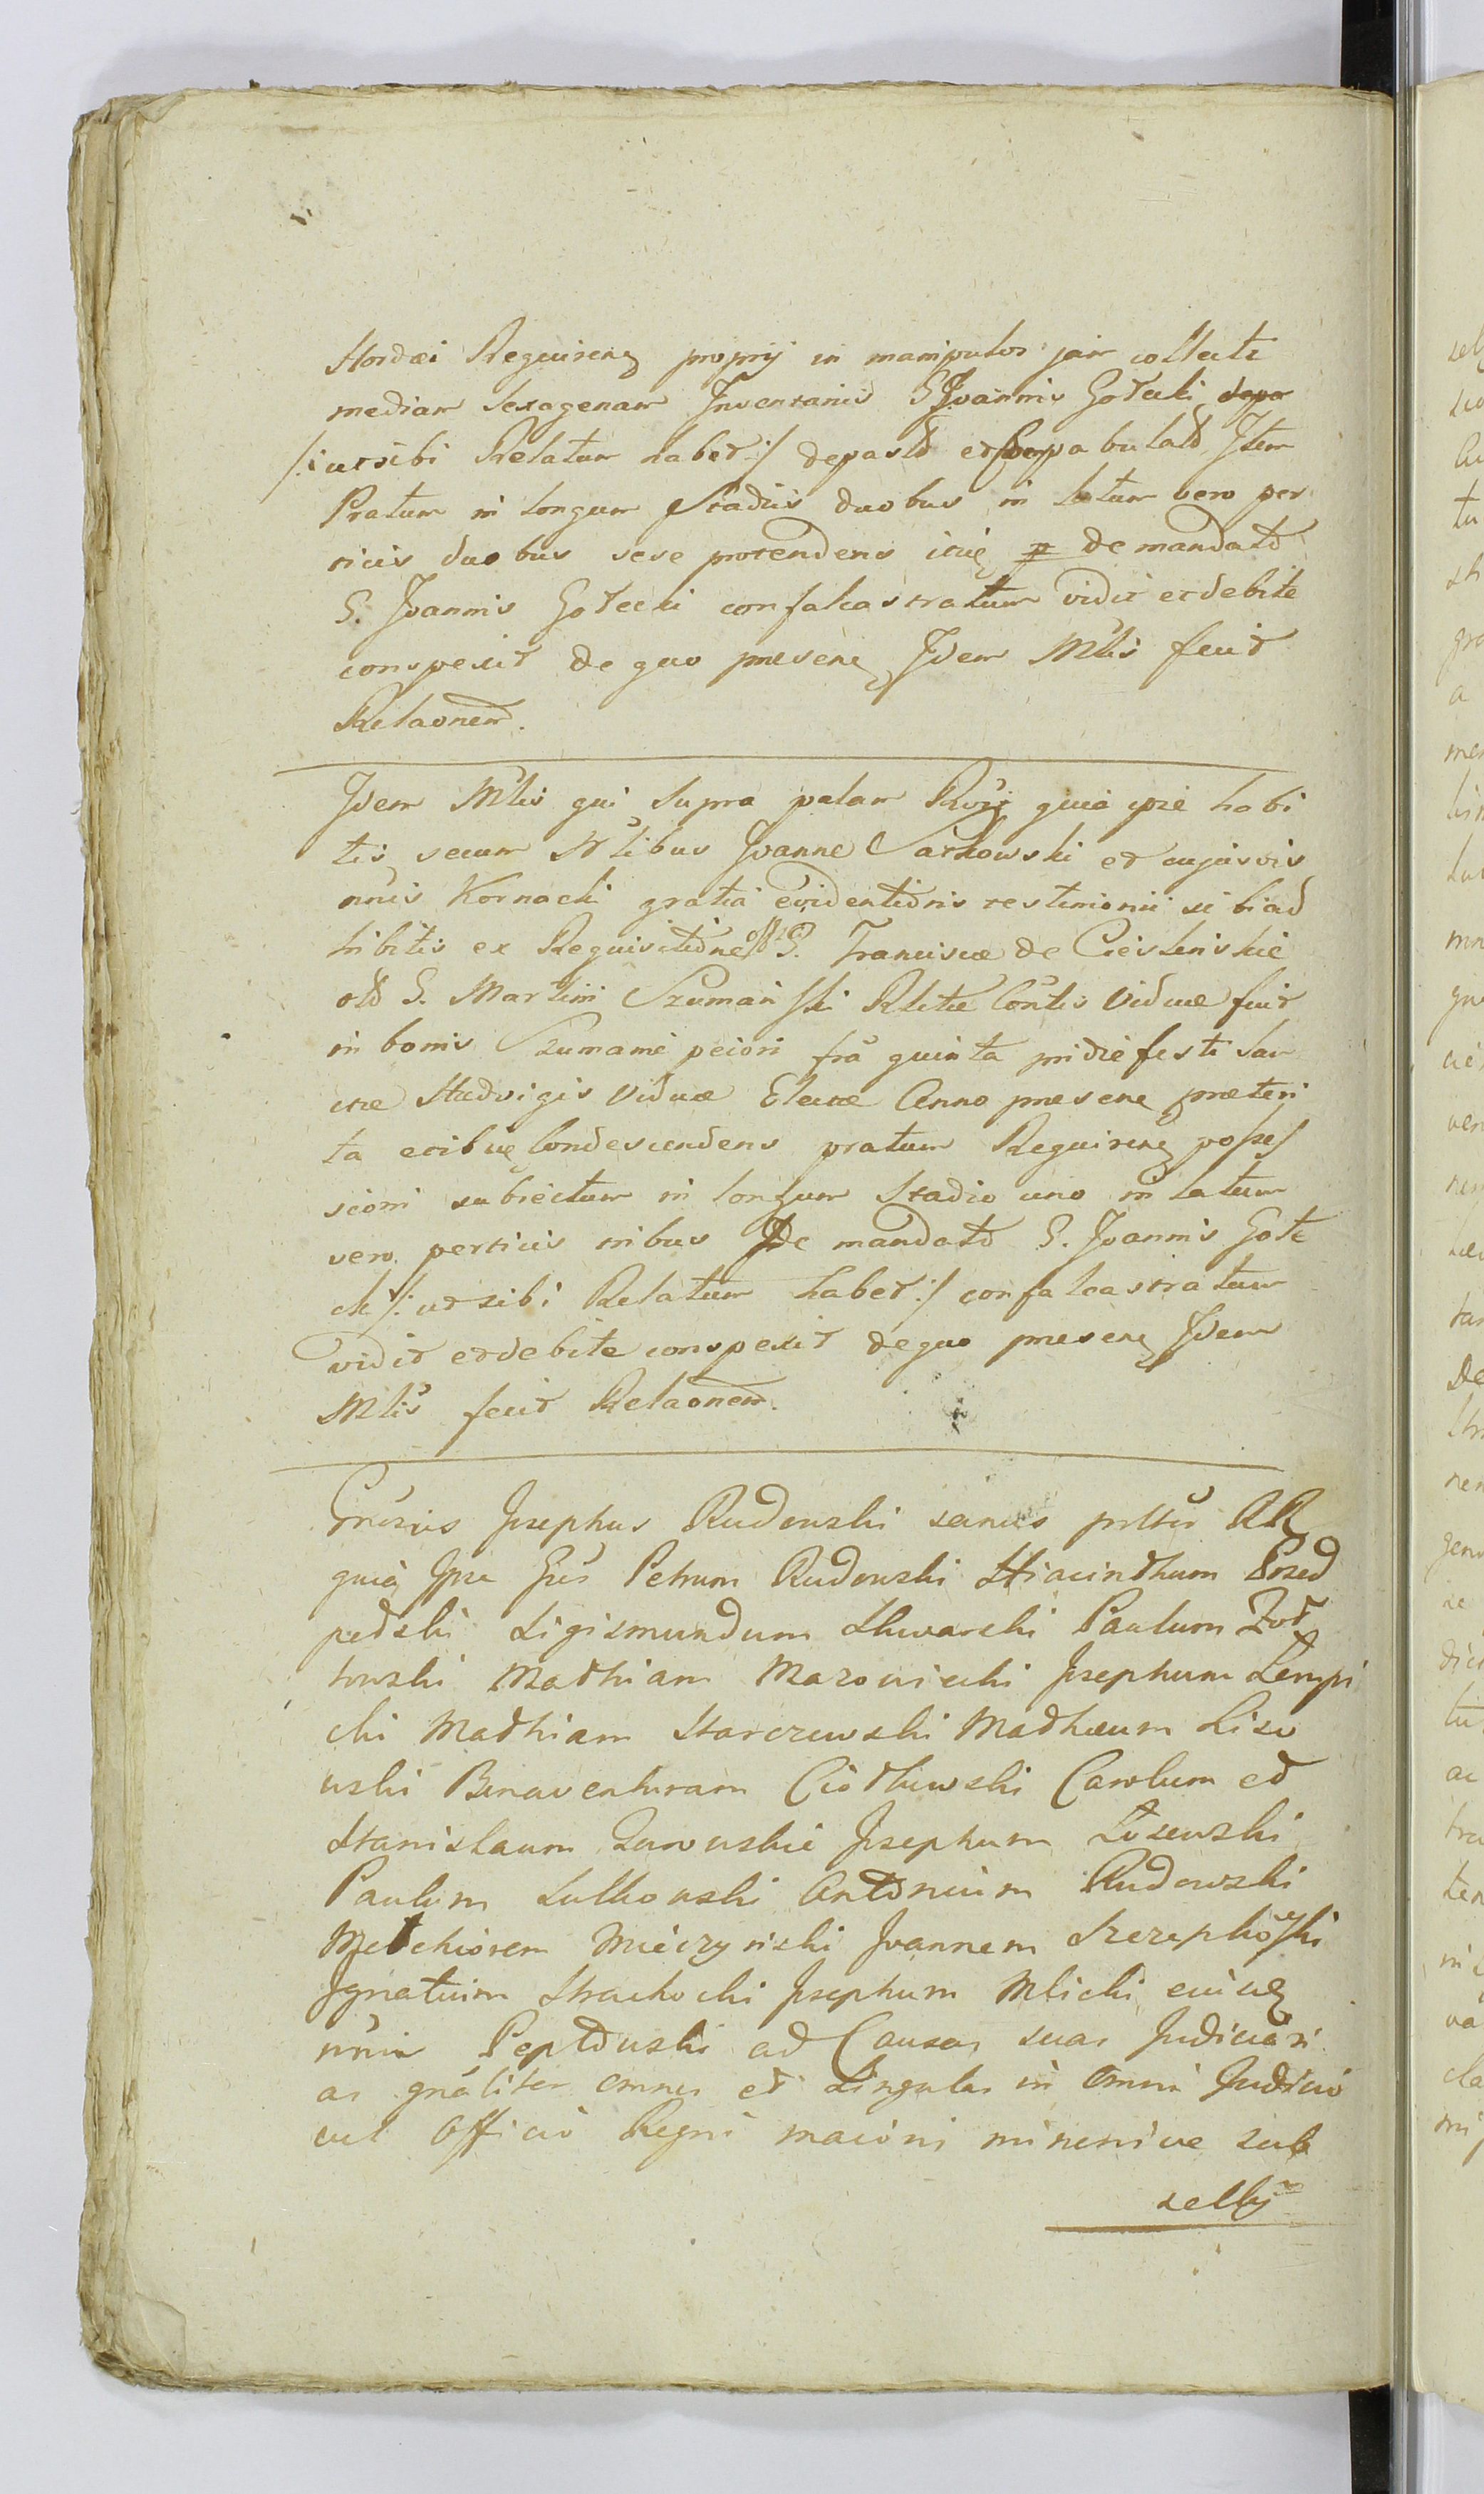 Hordæi Requirenς proprij in manipulos jam collecti
mediam sexagenam Inventariis G Joannis Gotecki
/:ut sibi Relatum habet:/ depasto et compabulato Item
Pratum in longum Stadiis duobus in latum vero per
ticis duobus sese protendens de mandato
G. Joannis Gotecki confalcastratum vidit et debite
conspexit de quo presenς Idem Mlis fecit
Relaonem.
Idem Mlis qui Supra palam quia ipse habi
tis secum Nlibus Joanne Sarkowski et cujusvis
nnis Kornacki gratia evidentioris testimonii sibi ad
hibitis ex Requisitione G. Franciscæ de Cieslinskie
olo G. Martini Szumanski Rlictæ Contis Viduæ fuit
in bonis Szumanie peiori fra quinta pridie festi San
ctæ Hedvigis Viduæ Electæ Anno presenς præteri
ta et ibiς Condescendens pratum Requirenς posses
sioni subiectum in longum Stadio uno in latum
vero perticis tribus De mandato G. Joannis Gote
cki /: ut sibi Relatum habet:/ confalcastratum
vidit et debite conspexit de quo presenς Idem
Mlis fecit Relaonem.
Josephus Rudowski sanus
quia Ipse Petrum Rudowski Hiacinthum Przed
pełski Sigismundum Skwarski Paulum Żoł
towski Mathiam Mazowiecki Josephum Lempi
cki Mathiam Starczewski Mathæum Liso
wski Bonaventuram Ciołkowski Carolum et
Stanislaum Zurowskie Josephum Łosewski
Paulum Sulkowski Antonium Rudowski
Melchiorem Mieczynski Joannem Szczepkowski
Ignatium Strachocki Josephum Mlicki cuiusς
nnis Peplowski ad Causas suas Judiciari
as gnaliter omnes et Singulas in omni Judicio
vel Officio Regni maiori minorive sub
sellij